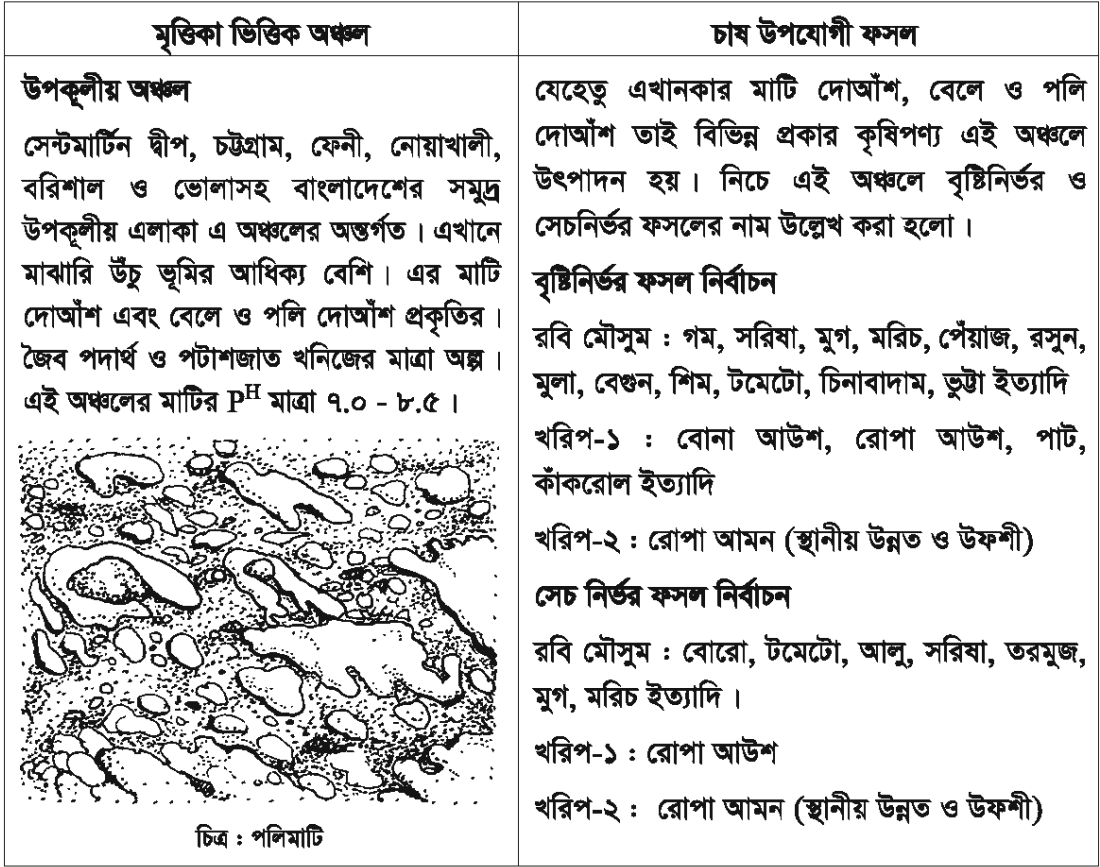 মৃত্তিকা ভিত্তিক অঞ্চল
উপকূলীয় অঞ্চল
সেন্টমার্টিন দ্বীপ, চট্টগ্রাম, ফেনী, নোয়াখালী,
বরিশাল ও ভোলাসহ বাংলাদেশের সমুদ্র
উপকূলীয় এলাকা এ অঞ্চলের অন্তর্গত। এখানে
মাঝারি উঁচু ভূমির আধিক্য বেশি। এর মাটি
দোআঁশ এবং বেলে ও পলি দোআঁশ প্রকৃতির।
জৈব পদার্থ ও পটাশজাত খনিজের মাত্রা অল্প।
এই অঞ্চলের মাটির P^H মাত্রা ৭.০ - ৮.৫।
চিত্র : পলিমাটি
চাষ উপযোগী ফসল
যেহেতু এখানকার মাটি দোআঁশ, বেলে ও পলি
দোআঁশ তাই বিভিন্ন প্রকার কৃষিপণ্য এই অঞ্চলে
উৎপাদন হয়। নিচে এই অঞ্চলে বৃষ্টিনির্ভর ও
সেচনির্ভর ফসলের নাম উল্লেখ করা হলো।
বৃষ্টিনির্ভর ফসল নির্বাচন
রবি মৌসুম : গম, সরিষা, মুগ, মরিচ, পেঁয়াজ, রসুন,
মুলা, বেগুন, শিম, টমেটো, চিনাবাদাম, ভুট্টা ইত্যাদি
খরিপ-১ : বোনা আউশ, রোপা আউশ, পাট,
কাঁকরোল ইত্যাদি
খরিপ-২ : রোপা আমন (স্থানীয় উন্নত ও উফশী)
সেচ নির্ভর ফসল নির্বাচন
রবি মৌসুম : বোরো, টমেটো, আলু, সরিষা, তরমুজ,
মুগ, মরিচ ইত্যাদি।
খরিপ-১ : রোপা আউশ
খরিপ-২ : রোপা আমন (স্থানীয় উন্নত ও উফশী)